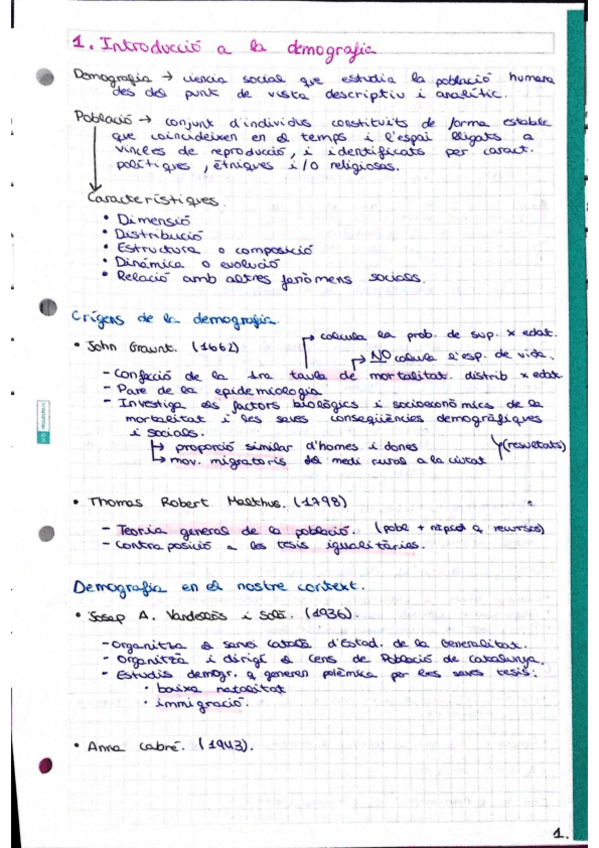 1. Introducció a la demografia
Demografia → ciencia social que estudia la població humana
des del punt de vista descriptiu i analític.
Població → conjunt d'individus constituïts de forma estable
que coincideixen en el temps i l'espai lligats a
vincles de reproducció, i identificats per caract.
polítiques, ètniques i/o religioses.
Característiques
• Dimensió
• Distribució
• Estructura o composició
• Dinámica o evolució
• Relació amb altres fenòmens socials.
Orígens de la demografia.
→ calcula la prob. de sup. x edat.
• John Graunt. (1662)
→ NO calcula l'esp. de vida.
- Confecció de la 1ra taula de mortalitat. distrib x edat
- Pare de la epidemiologia
- Investiga els factors biològics i socioeconòmics de la
mortalitat i les seves conseqüències demogràfiques
i socials.
→ proporció similar d'homes i dones
(resultats)
→ mov. migratoris del medi rural a la ciutat
• Thomas Robert Malthus. (1798)
- Teoria general de la població. (pobl + ràpid q recursos)
- Contraposició a les tesis igualitàries.
Demografia en el nostre context.
• Josep A. Vandellòs i Solà. (1936).
- Organitza el servei català d'Estad. de la Generalitat.
- Organitzà i dirigí el Cens de Població de Catalunya.
- Estudis demogr. q generen polèmica per les seves tesis:
• baixa natalitat
• immigració.
• Anna Cabré. (1943).
1.